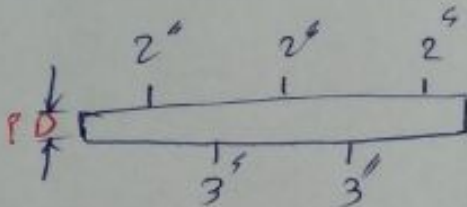 2" 2" 2"
? D
3" 3"